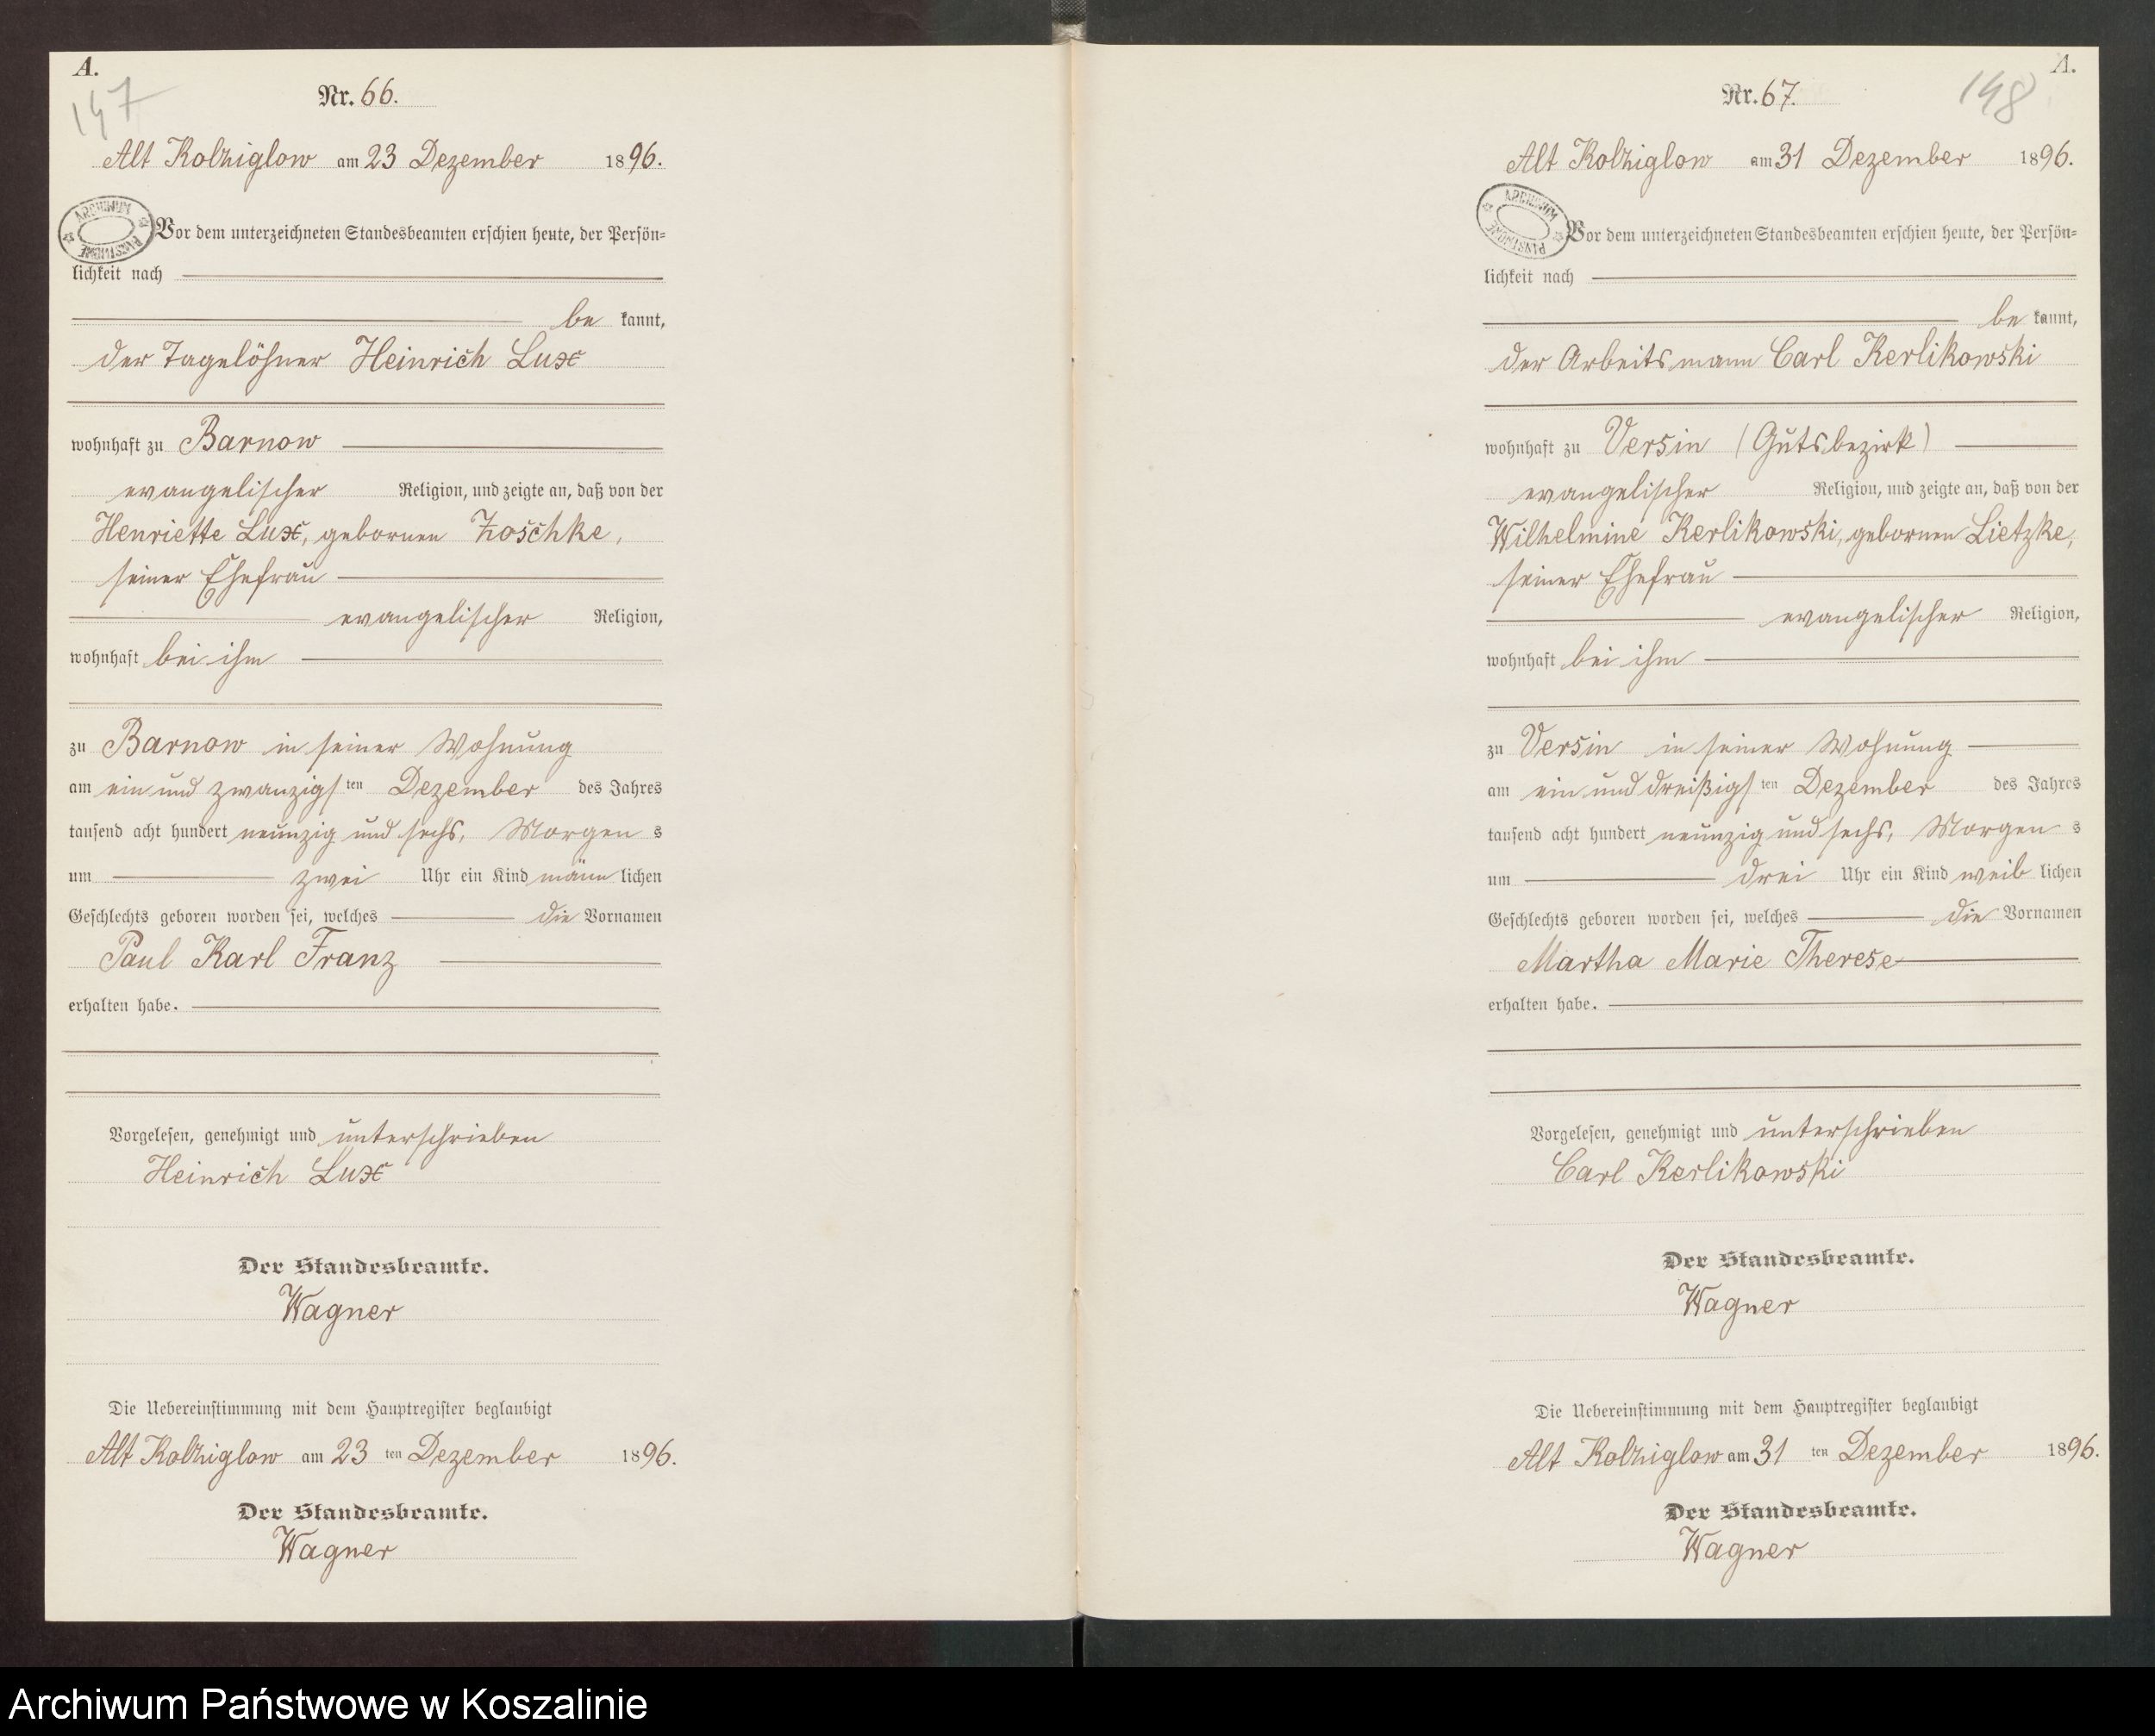 A.
147
Nr. 66.
Alt Kolziglow am 23 Dezember 1896.
ARCHIWUM PAŃSTWOWE
Vor dem unterzeichneten Standesbeamten erschien heute, der Persön=
lichkeit nach
be kannt,
der Tagelöhner Heinrich Lux
wohnhaft zu Barnow
evangelischer Religion, und zeigte an, daß von der
Henriette Lux, gebornen Zoschke,
seiner Ehefrau
evangelischer Religion,
wohnhaft bei ihm
zu Barnow in seiner Wohnung
am ein und zwanzigsten Dezember des Jahres
tausend acht hundert neunzig und sechs, Morgen s
um zwei Uhr ein Kind männ lichen
Geschlechts geboren worden sei, welches die Vornamen
Paul Karl Franz
erhalten habe.
Vorgelesen, genehmigt und unterschrieben
Heinrich Lux
Der Standesbeamte.
Wagner
Die Uebereinstimmung mit dem Hauptregister beglaubigt
Alt Kolziglow am 23 ten Dezember 1896.
Der Standesbeamte.
Wagner
A.
148
Nr. 67.
Alt Kolziglow am 31 Dezember 1896.
ARCHIWUM PAŃSTWOWE
Vor dem unterzeichneten Standesbeamten erschien heute, der Persön=
lichkeit nach
be kannt,
der Arbeitsmann Carl Kerlikowski
wohnhaft zu Versin (Gutsbezirk)
evangelischer Religion, und zeigte an, daß von der
Wilhelmine Kerlikowski, gebornen Lietzke,
seiner Ehefrau
evangelischer Religion,
wohnhaft bei ihm
zu Versin in seiner Wohnung
am ein und dreißigsten Dezember des Jahres
tausend acht hundert neunzig und sechs, Morgen s
um drei Uhr ein Kind weib lichen
Geschlechts geboren worden sei, welches die Vornamen
Martha Marie Therese
erhalten habe.
Vorgelesen, genehmigt und unterschrieben
Carl Kerlikowski
Der Standesbeamte.
Wagner
Die Uebereinstimmung mit dem Hauptregister beglaubigt
Alt Kolziglow am 31 ten Dezember 1896.
Der Standesbeamte.
Wagner
Archiwum Państwowe w Koszalinie